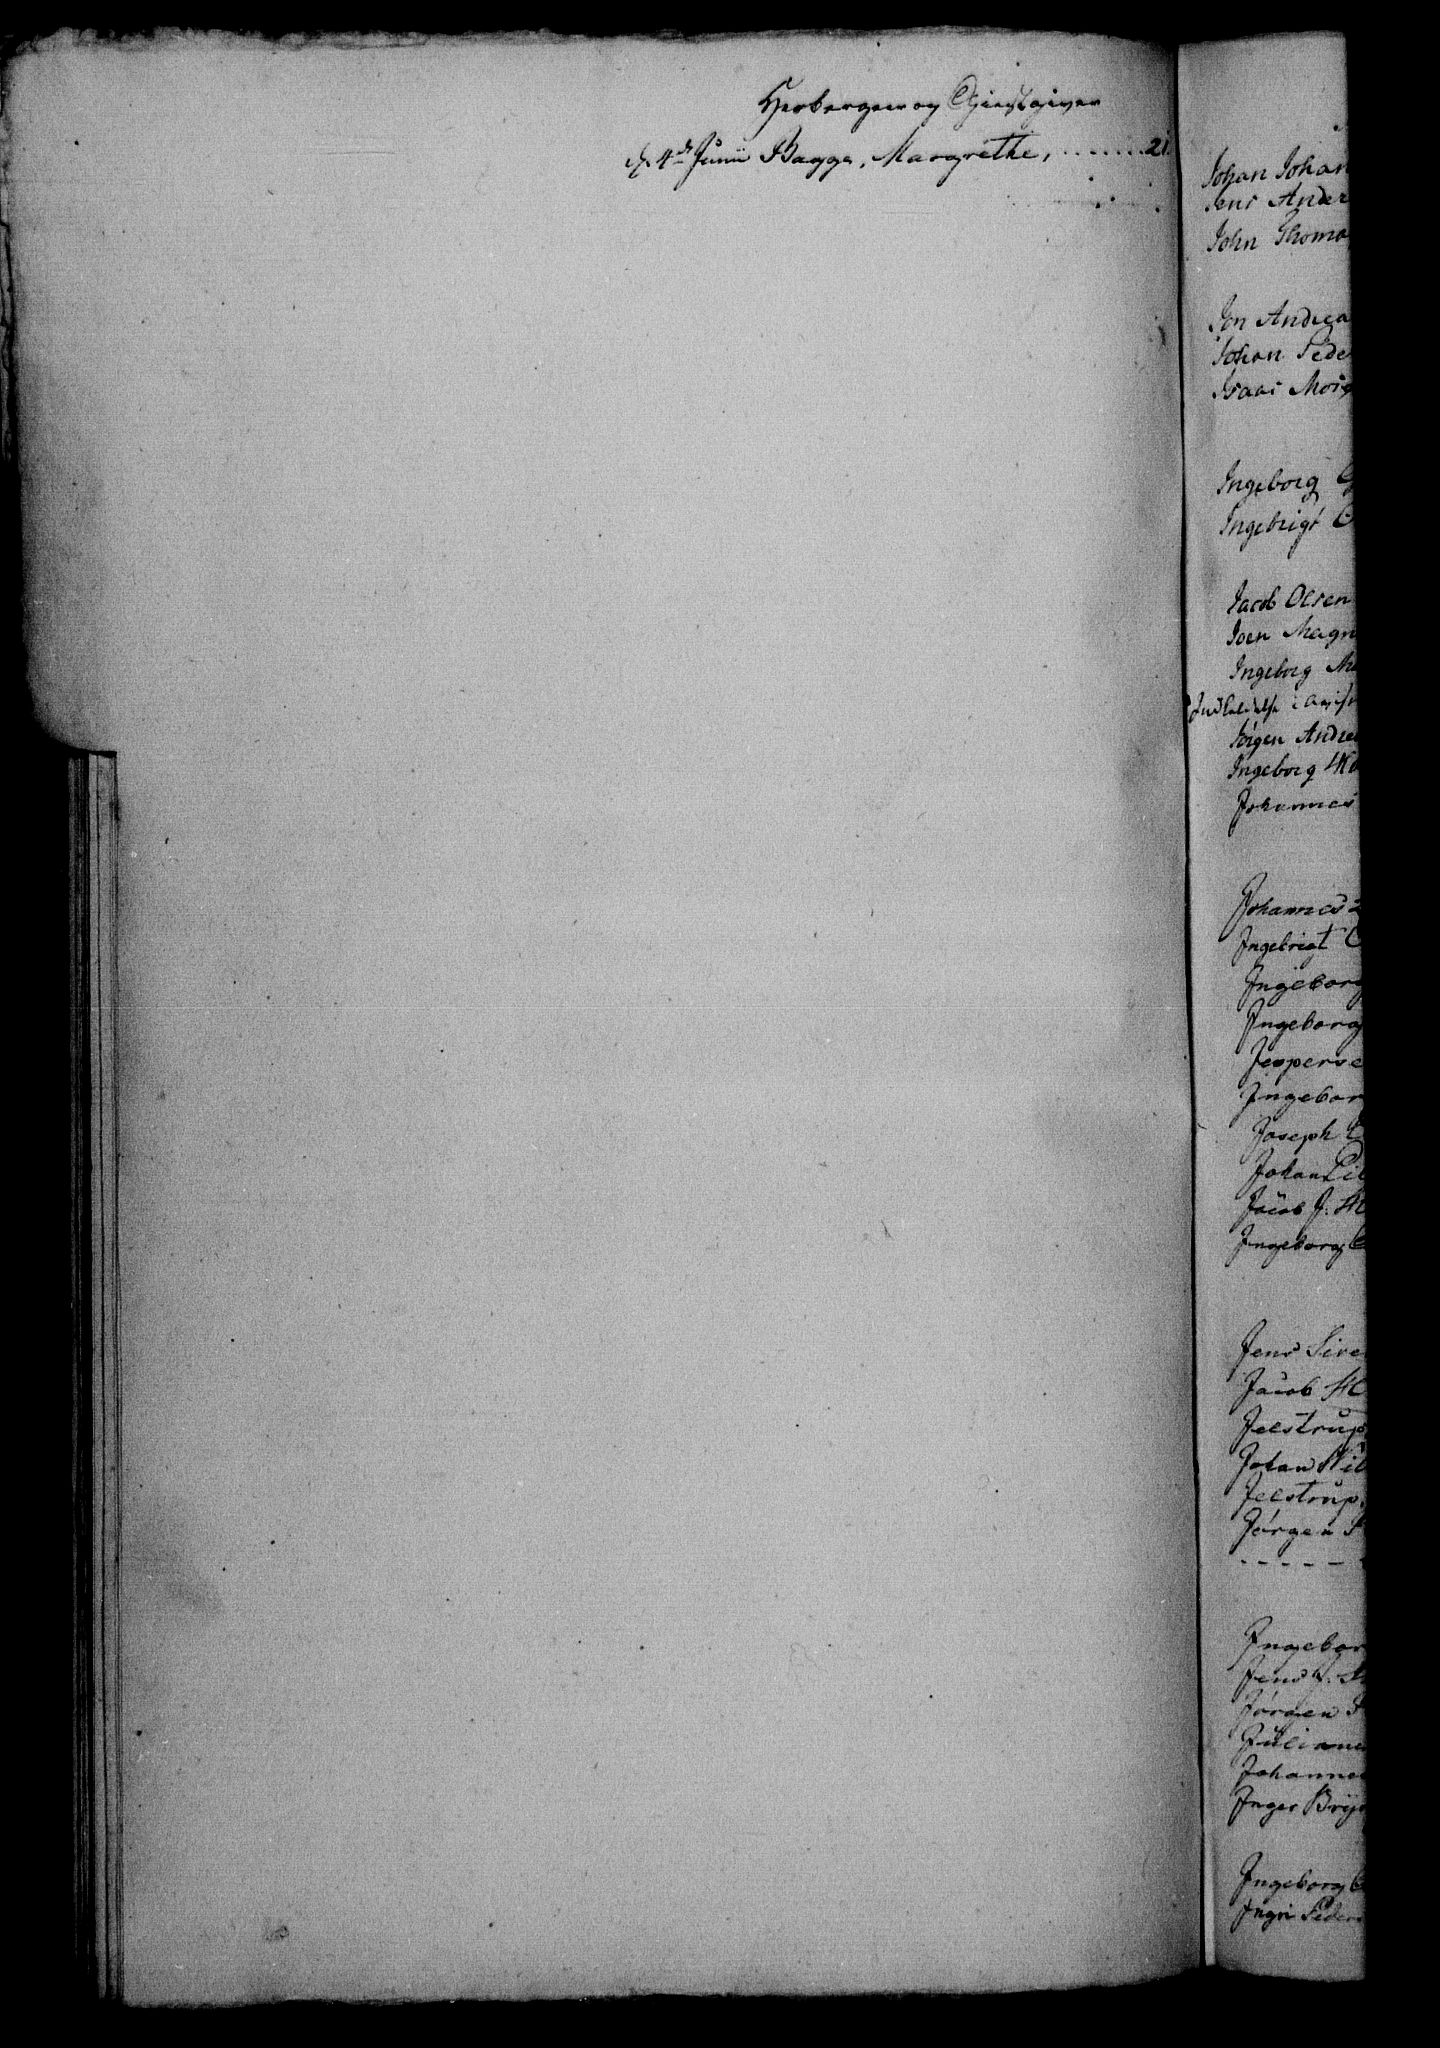 Herbergeer og Giestgiver
d. 4de Junii Bagge, Margrethe, ....... 21.
Johan Johan
Jens Ander
John Thoma
Jon Andrea
Johan Pede
Isaac Mois
Ingeborg
Ingebrigt
Jacob Olsen
Joen Magn
Ingeborg
Jørgen Andre
Ingeborg
Johannes
Johannes
Ingebrigt
Ingeborg
Ingeborg
Jesperse
Ingebor
Joseph
Johan
Jacob J:
Ingeborg
Jens Sive
Jacob
Jelstrup
Johan
Jelstrup
Jørgen
- - - - -
Ingebor
Jens J:
Jørgen
Juliane
Johanne
Inger
Ingeborg
Ingri Peders